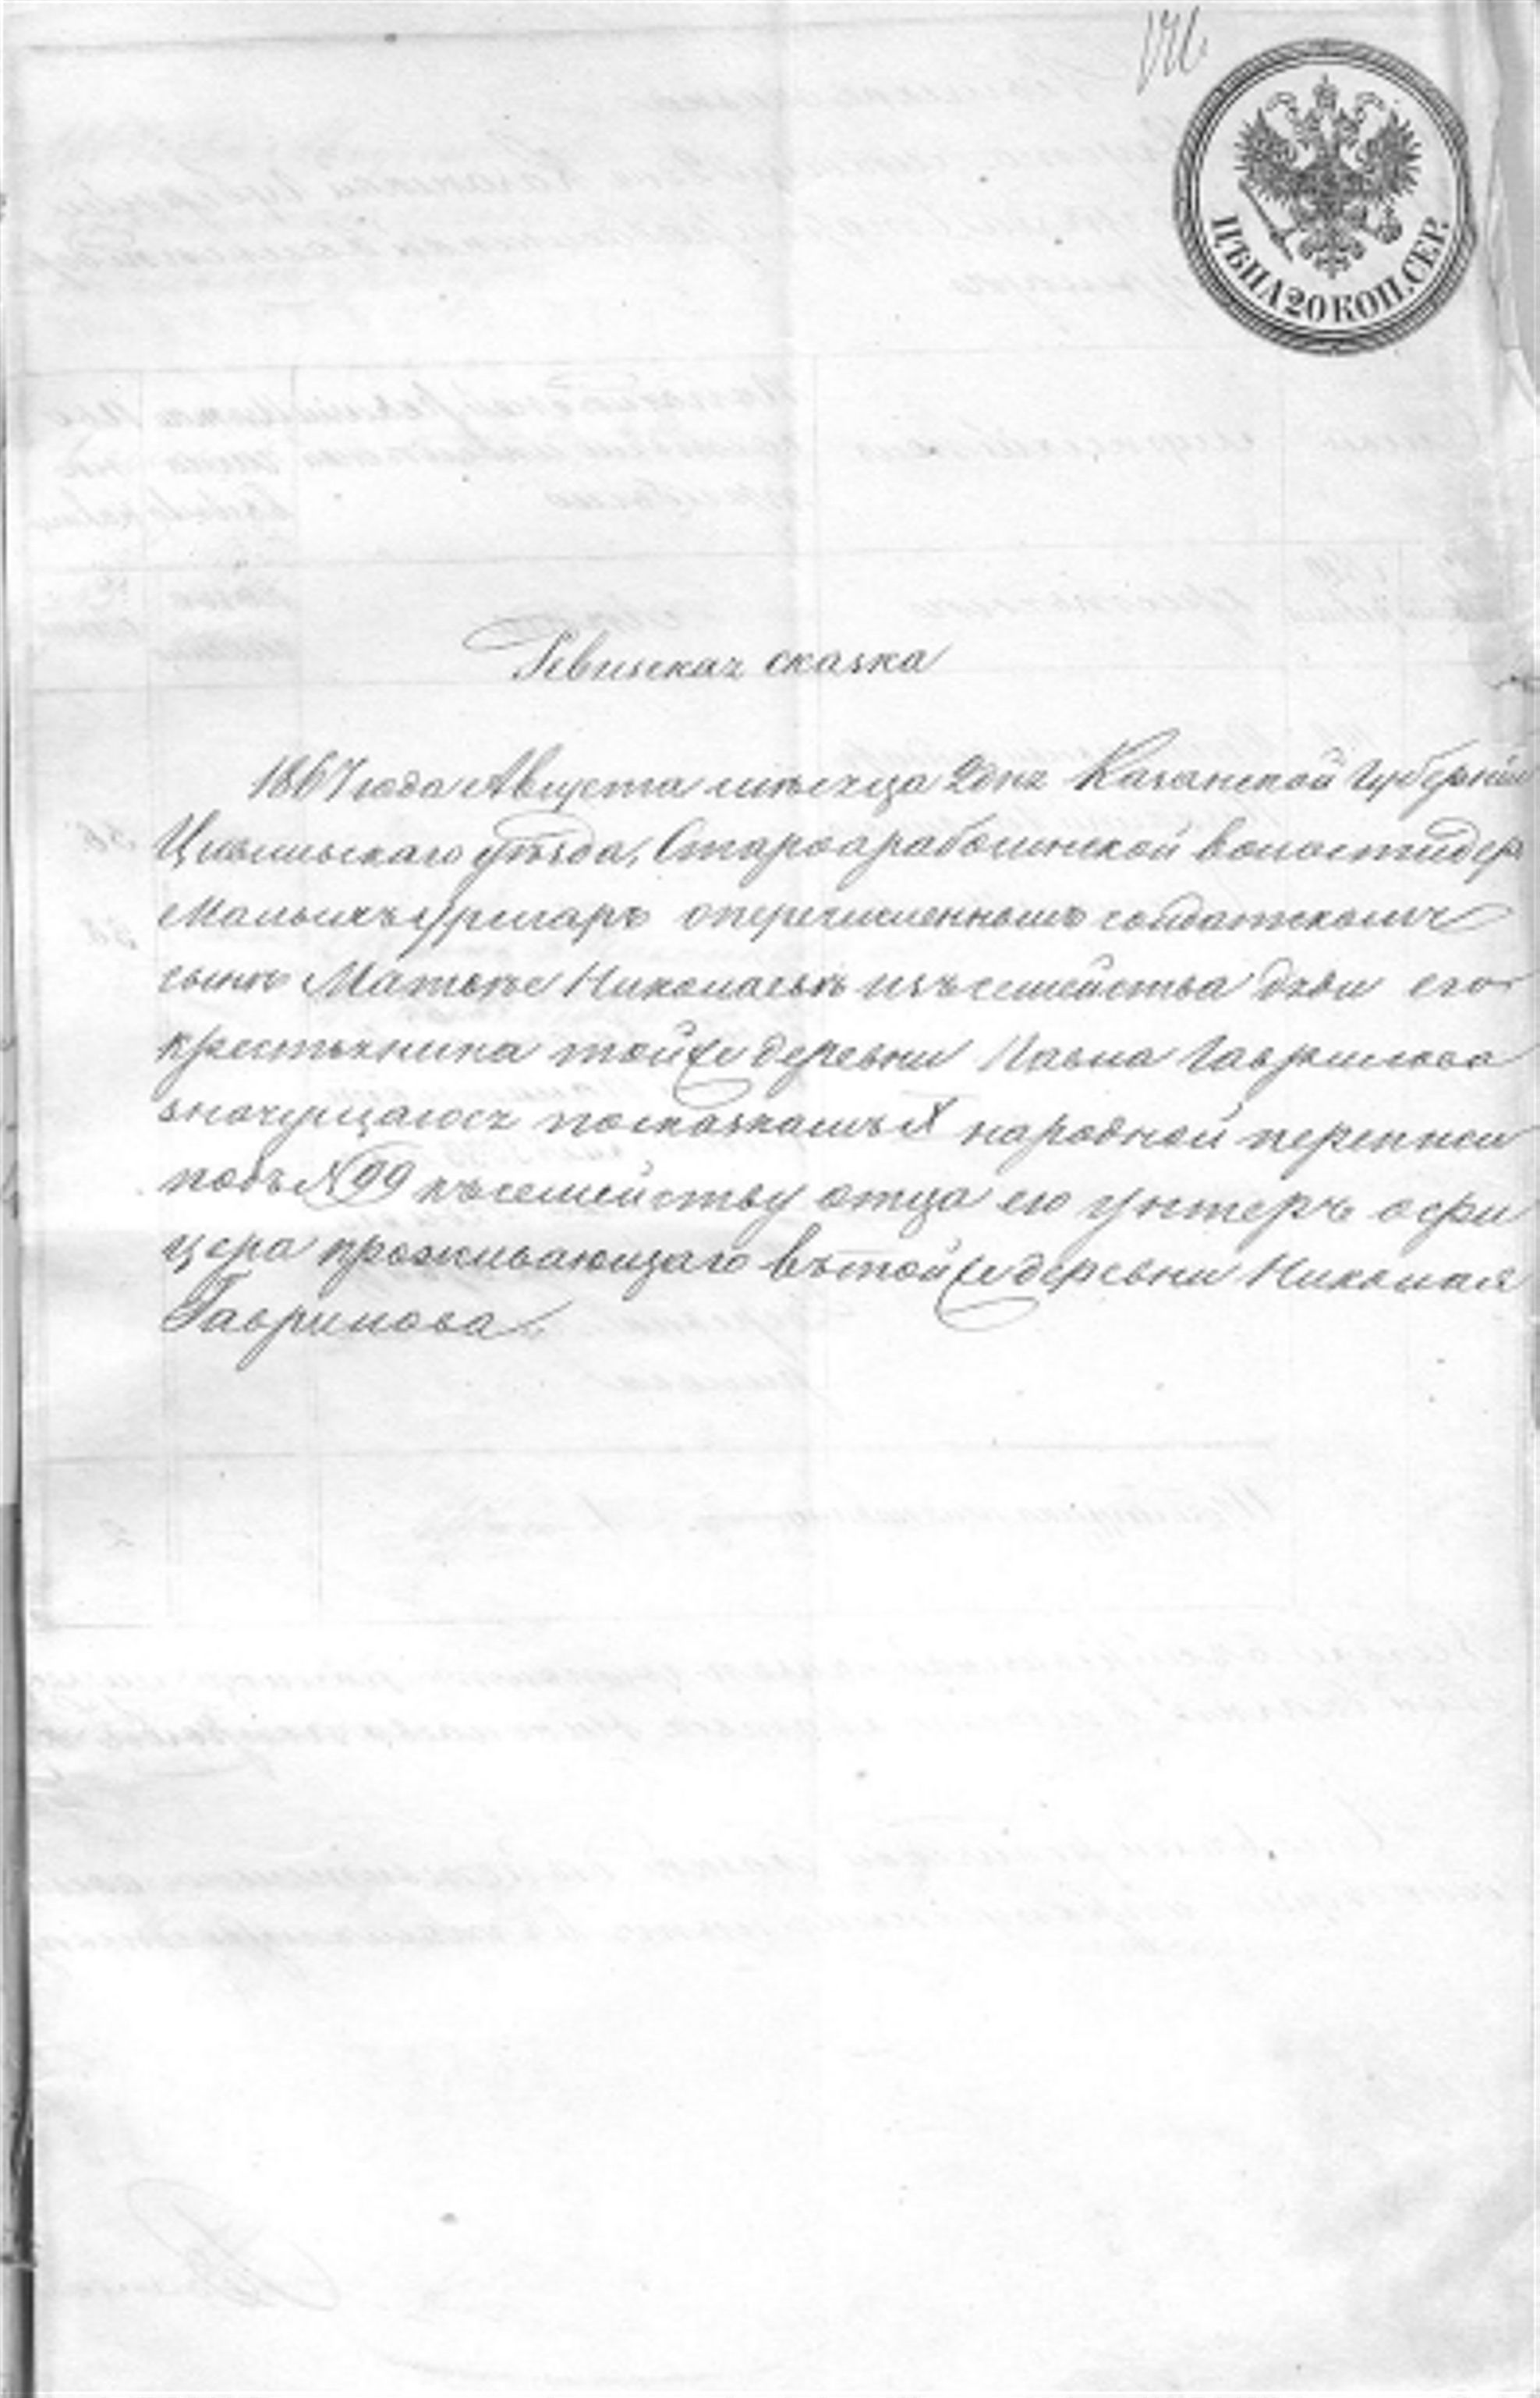 ЦѢНА 20 КОП. СЕР.
Ревизская сказка
1867 года Августа мѣсяца 2 дня Казанской Губерніи
Цивильскаго уѣзда, Староарабосинской волости дер
Малыхъ о перечисленномъ солдатскомъ
сынѣ Матвѣе Николаевѣ изъ семейства дяди его
крестьянина той же деревни Павла Гаврилова
значущагося по сказкамъ X народной переписи
подъ № 99 къ семейству отца его унтеръ офи
цера проживающаго въ той же деревни Николая
Гаврилова.